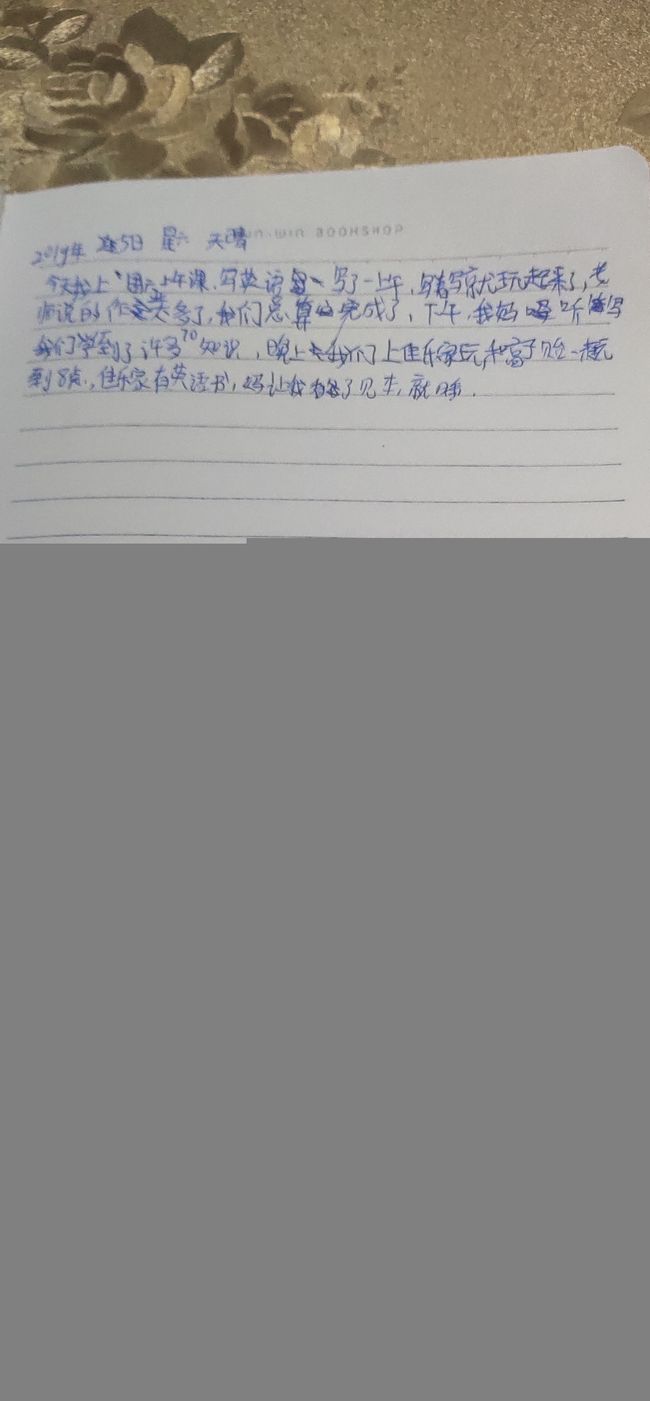 2019年 5日 星六 天晴
今天我上 周六上午课,写英语 写了一上午,写着写就玩起来了,老
师说的作业太多了,我们总算完成了,下午,我妈 听写
我们学到了许多知识,晚上去我们上佳乐家玩,和高 一起玩
到8点,佳乐家有英语书,妈让我 了几本,就睡.